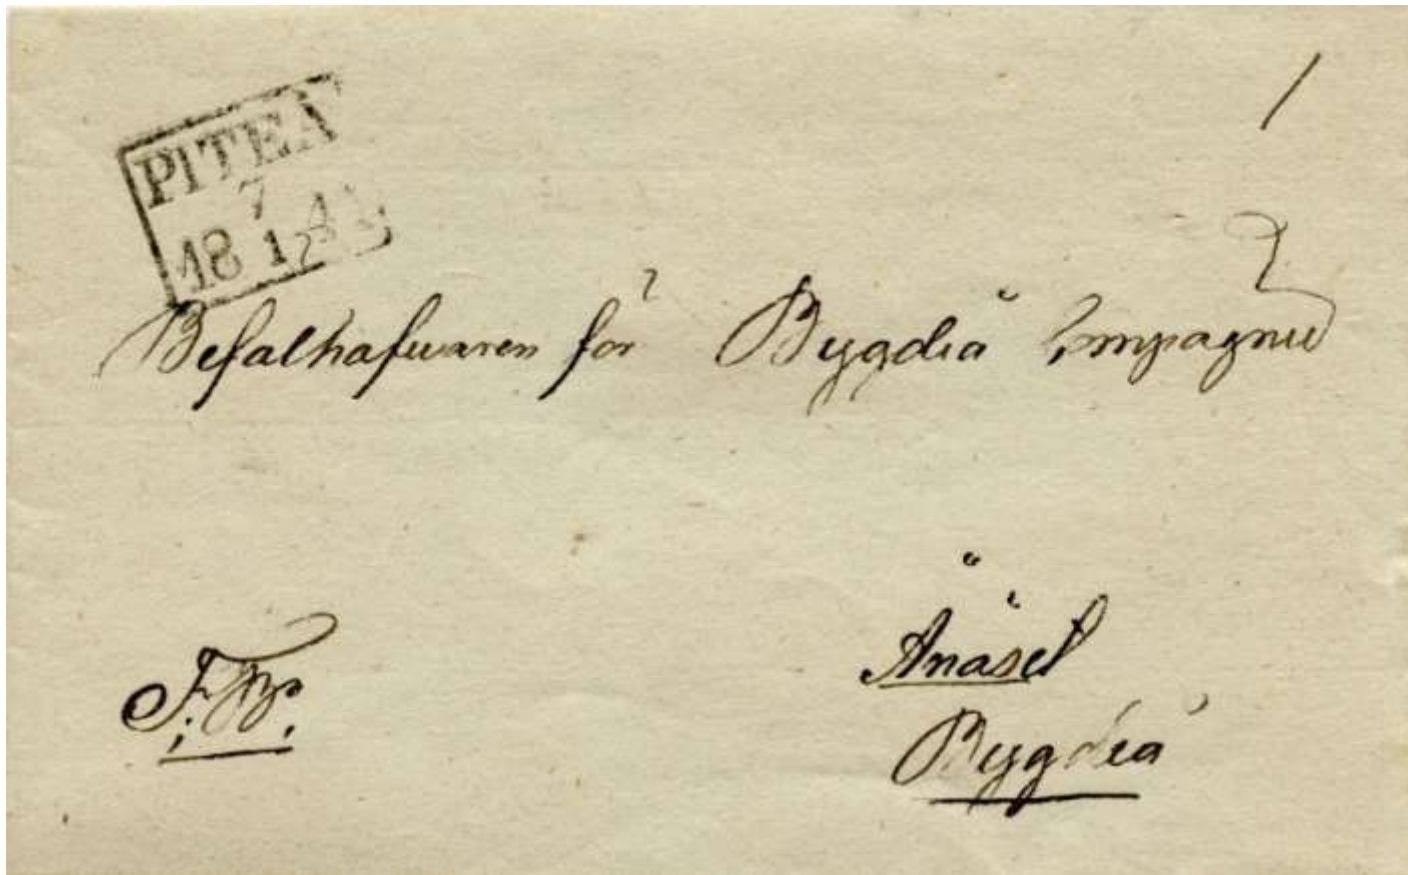 PITEÅ
7
18 12
Befälhafwaren för Bygdeå Compagnie
Ånäset
Bygdeå